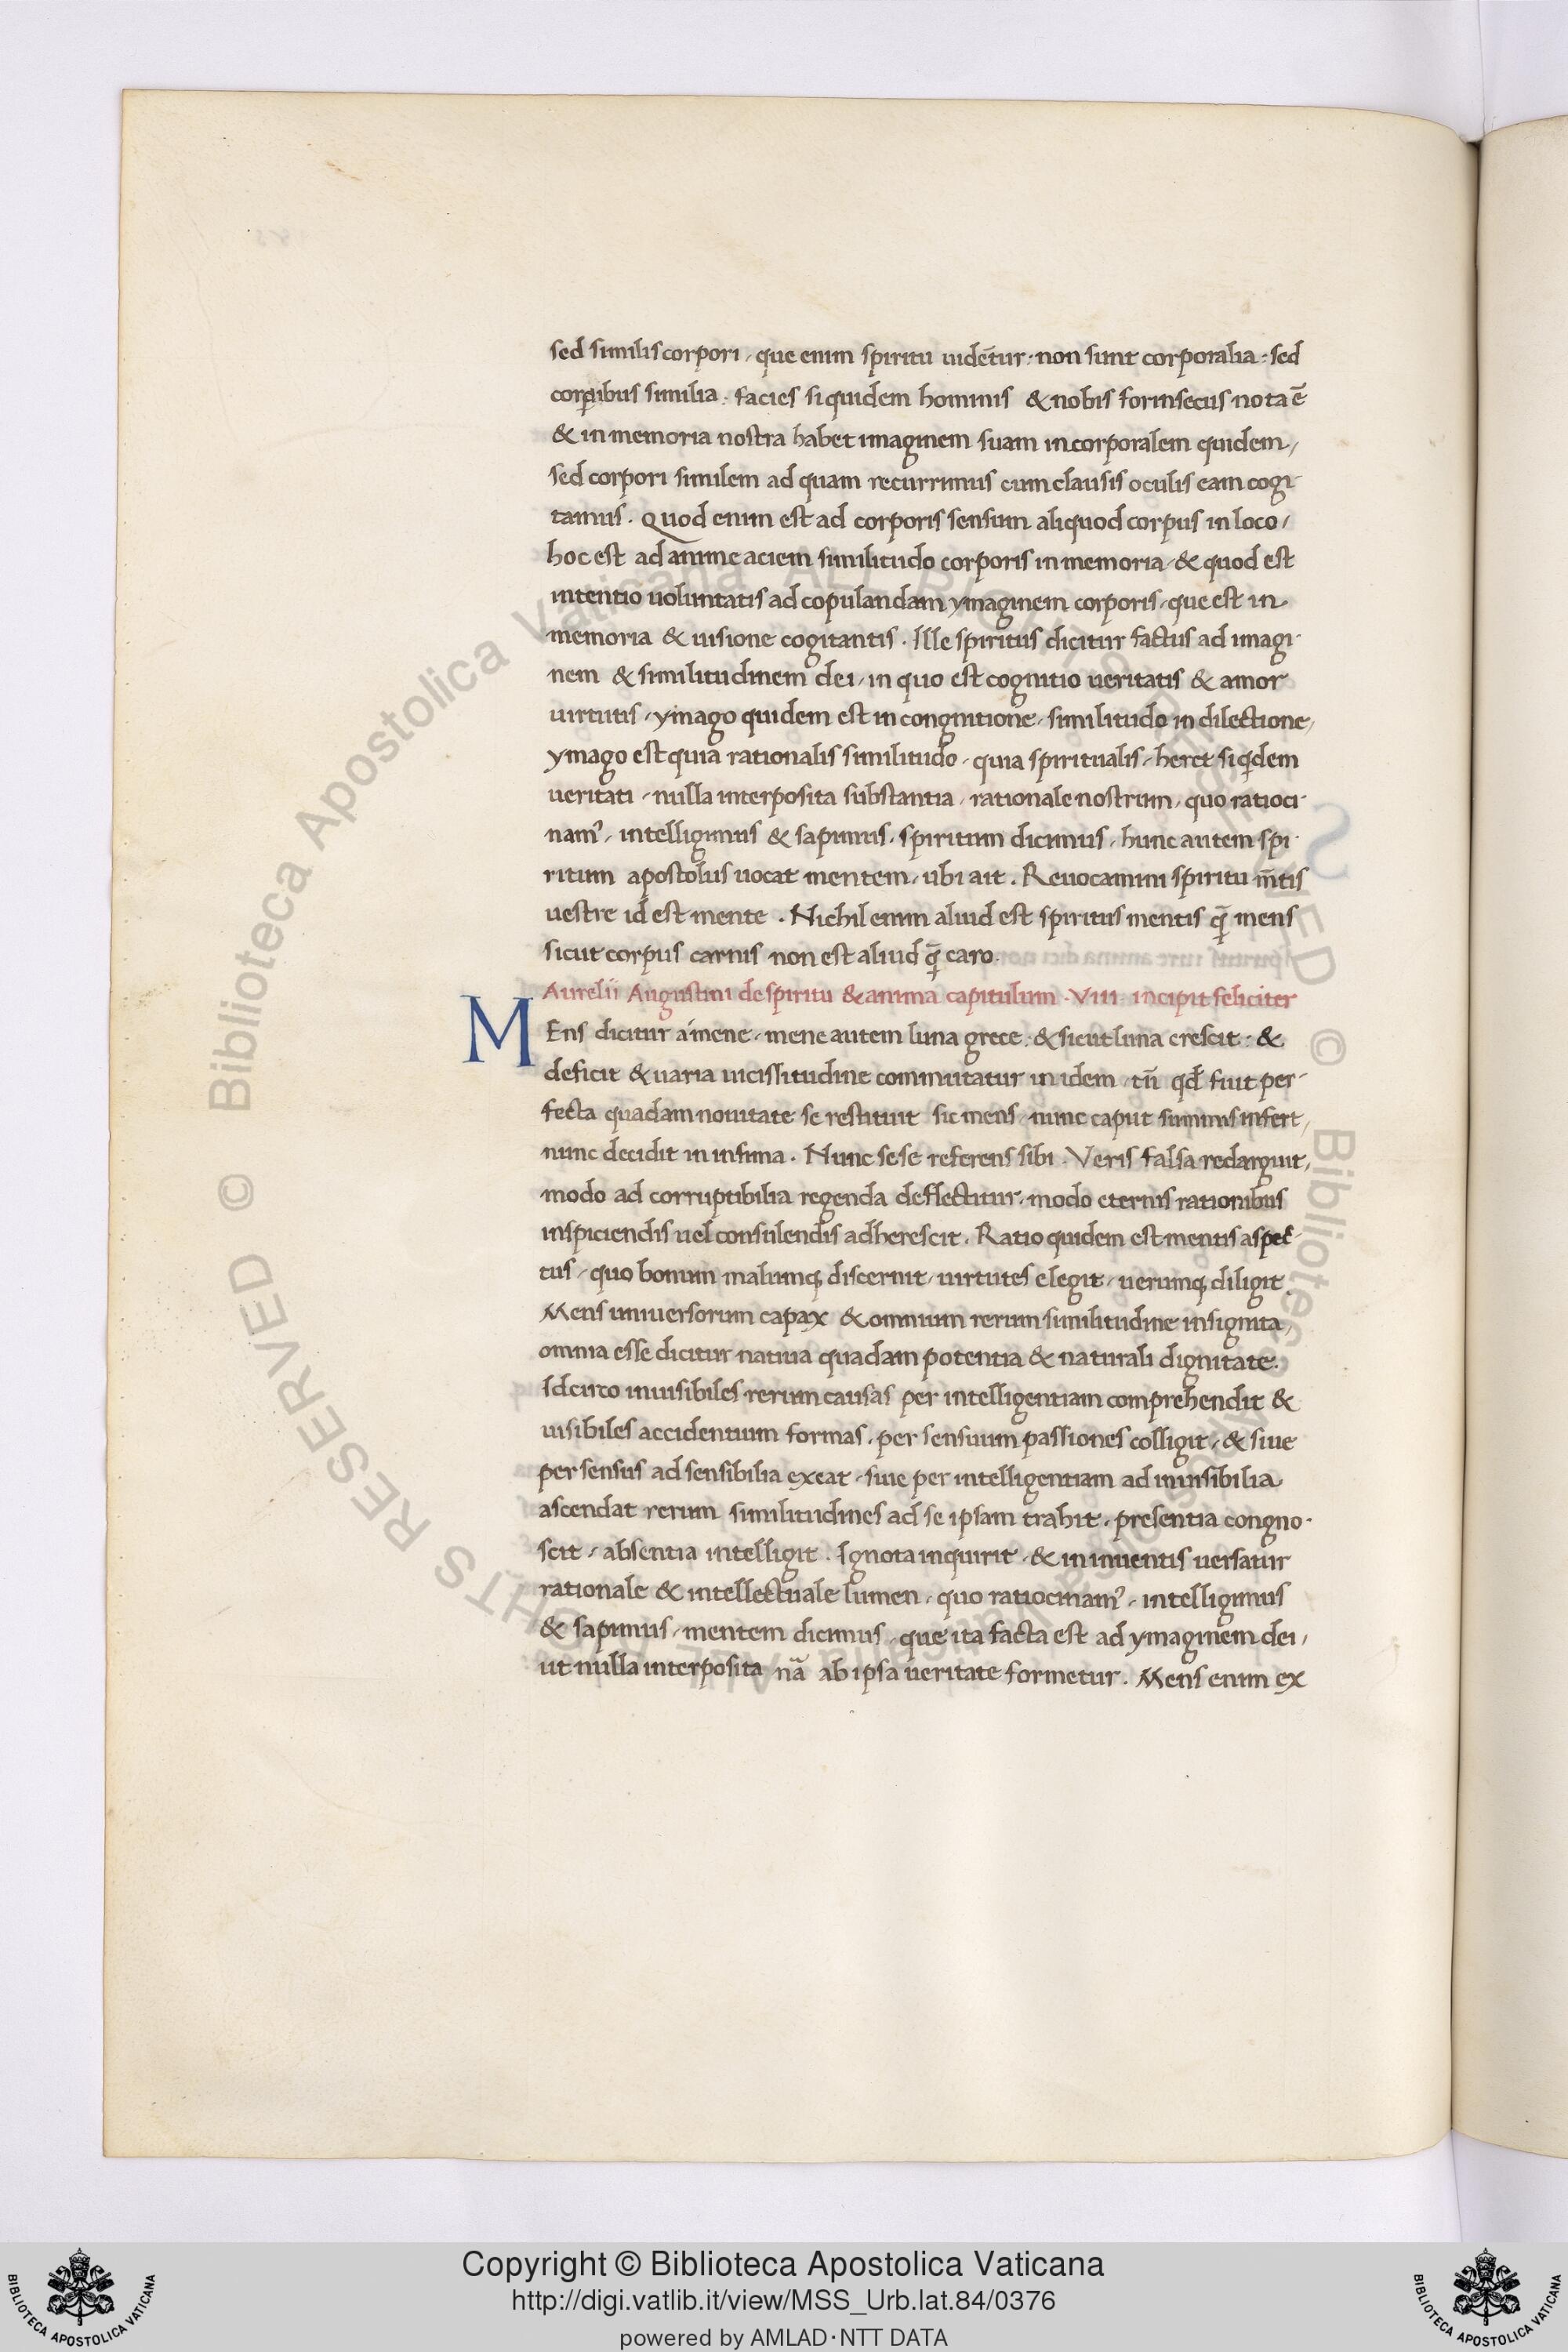 sed similis corpori, que enim spiritu uidẽtur: non sunt corporalia: sed
corꝑibus similia. facies siquidem hominis & nobis forinsecus nota ẽ
& in memoria nostra habet imaginem suam incorporalem quidem,
sed corpori similem ad quam recurrimus cum clausis oculis eam cogi-
tamus. Quod enim est ad corporis sensum aliquod corpus in loco,
hoc est ad anime aciem similitudo corporis in memoria, & quod est
intentio uoluntatis ad copulandam ymaginem corporis, que est in
memoria & uisione cogitantis. Ille spiritus dicitur factus ad imagi-
nem & similitudinem dei, in quo est cognitio ueritatis & amor
uirtutis, ymago quidem est in congnitione, similitudo in dilectione,
ymago est quia rationalis similitudo, quia spiritualis, heret siqdem
ueritati, nulla interposita substantia, rationale nostrum, quo ratioci-
nam᾽, intelligimus & sapimus, spiritum dicimus, hunc autem spi-
ritum apostolus uocat mentem, ubi ait. Reuocamini spiritu m̃tis
uestre id est mente. Nichil enim aliud est spiritus mentis q̃ mens
sicut corpus carnis non est aliud q̃ caro.
Aurelii Augustini de spiritu & anima capitulum .VIII. incipit feliciter
MEns dicitur a mene, mene autem luna grece: & sicut luna crescit: &
deficit & uaria uicissitudine commutatur in idem, tñ qđ fuit per-
fecta quadam nouitate se restituit sic mens, nunc caput summis infert,
nunc decidit in infima. Nunc sese referens sibi. Veris falsa redarguit,
modo ad corruptibilia regenda deflectitur, modo eternis rationibus
inspiciendis uel consulendis adherescit. Ratio quidem est mentis aspec-
tus, quo bonum malumq; discernit, uirtutes elegit, uerumq; diligit.
Mens uniuersorum capax & omnium rerum similitudine insignita,
omnia esse dicitur natiua quadam potentia & naturali dignitate.
Idcirco inuisibiles rerum causas per intelligentiam comprehendit &
uisibiles accidentium formas, per sensuum passiones colligit, & siue
per sensus ad sensibilia exeat, siue per intelligentiam ad inuisibilia
ascendat rerum similitudines ad se ipsam trahit, presentia congno-
scit, absentia intelligit. Ignota inquirit, & in inuentis uersatur
rationale & intellectuale lumen, quo ratiocinam᾽, intelligimus
& sapimus, mentem dicimus, que ita facta est ad ymaginem dei,
ut nulla interposita nã ab ipsa ueritate formetur. Mens enim ex
© Biblioteca Apostolica Vaticana ALL RIGHTS RESERVED © Biblioteca Apostolica Vaticana ALL RIGHTS RESERVED
Copyright © Biblioteca Apostolica Vaticana
http://digi.vatlib.it/view/MSS_Urb.lat.84/0376
powered by AMLAD·NTT DATA
BIBLIOTECA APOSTOLICA VATICANA
BIBLIOTECA APOSTOLICA VATICANA